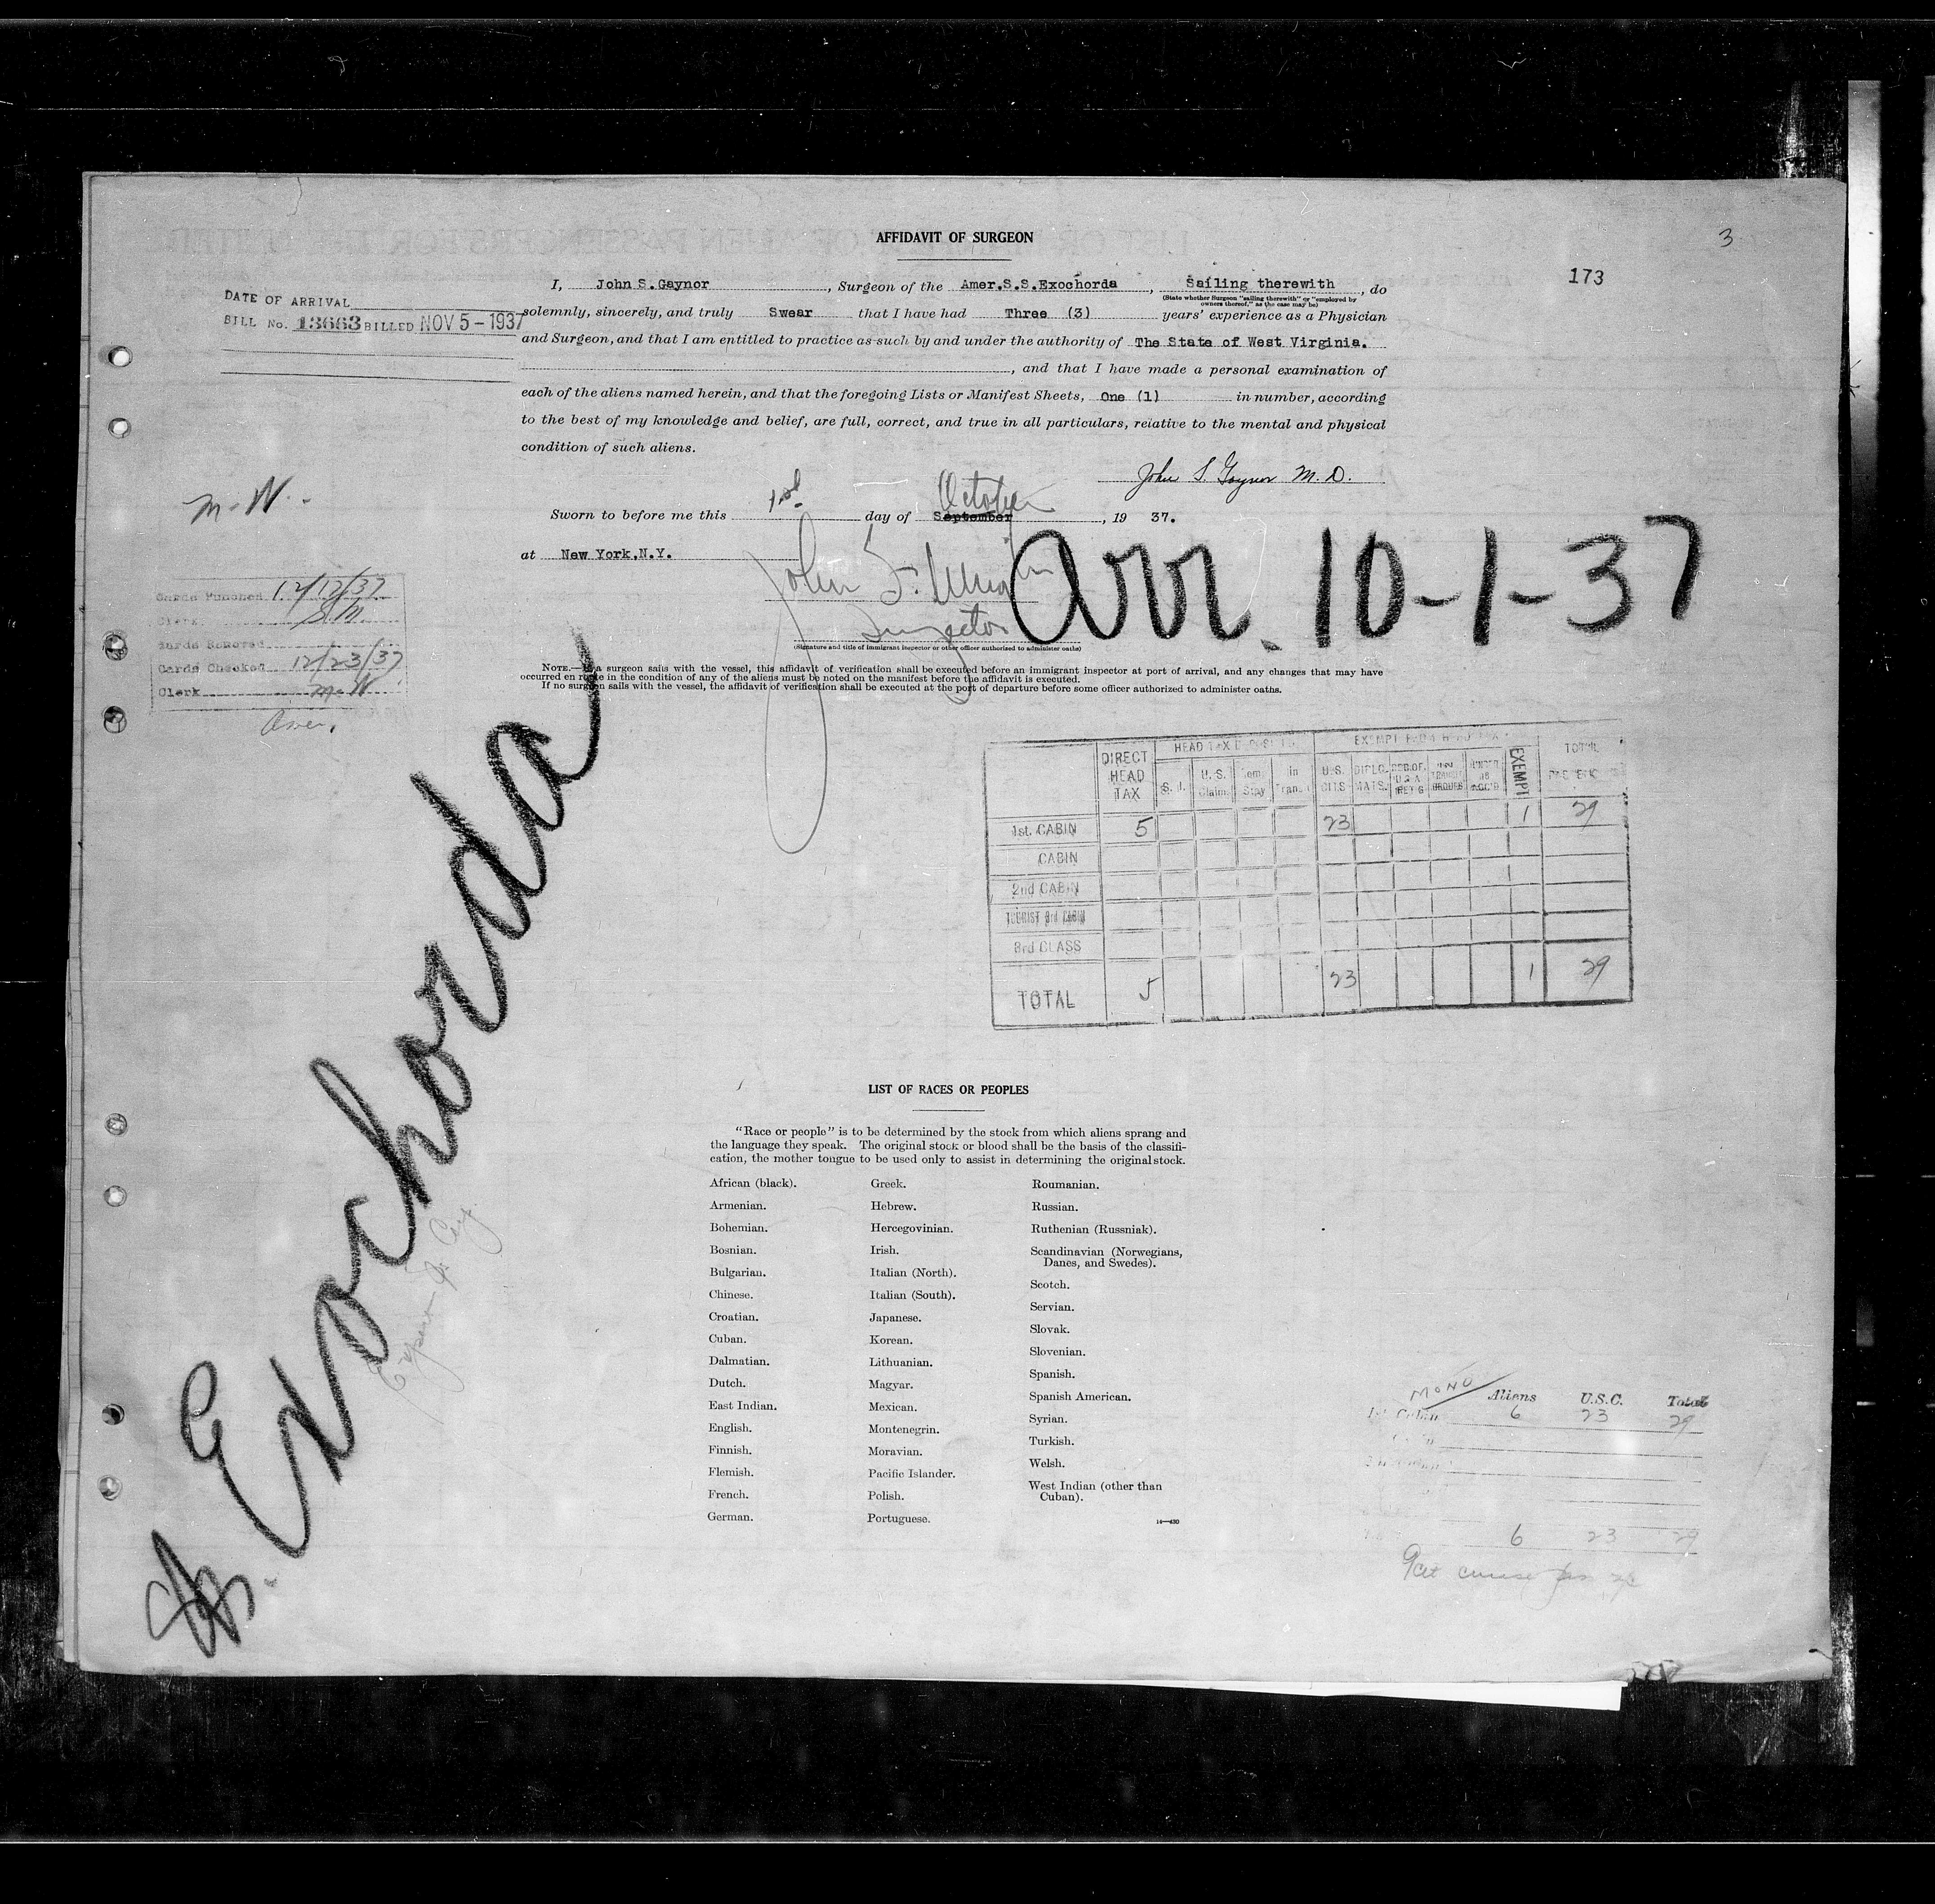 AFFIDAVIT OF SURGEON
3
173
I, John S.Gaynor, Surgeon of the Amer.S.S.Exochorda, Sailing therewith, do
(State whether Surgeon "sailing therewith" or "employed by
owners thereof," as the case may be)
DATE OF ARRIVAL
BILL No. 13663 BILLED NOV 5-1937
solemnly, sincerely, and truly Swear that I have had Three (3) years' experience as a Physician
and Surgeon, and that I am entitled to practice as such by and under the authority of The State of West Virginia.
, and that I have made a personal examination of
each of the aliens named herein, and that the foregoing Lists or Manifest Sheets, One (1) in number, according
to the best of my knowledge and belief, are full, correct, and true in all particulars, relative to the mental and physical
condition of such aliens.
John S Gaynor M.D.
M.W.
Sworn to before me this 1st day of September October, 19 37.
at New York,N.Y.
Arr. 10-1-37
Inspector
(Signature and title of immigrant inspector or other officer authorized to administer oaths)
Cards Punched 12/12/37
Clerk S.M.
Cards Checked 12/23/37
Clerk M.W.
NOTE.—If a surgeon sails with the vessel, this affidavit of verification shall be executed before an immigrant inspector at port of arrival, and any changes that may have
occurred en route in the condition of any of the aliens must be noted on the manifest before the affidavit is executed.
If no surgeon sails with the vessel, the affidavit of verification shall be executed at the port of departure before some officer authorized to administer oaths.
DIRECT HEAD TAX
U.S. Claim
U.S. CITS
EXEMPT
1st. CABIN 5 23 1 29
CABIN
2nd CABIN
TOURIST 3rd CABIN
3rd CLASS
TOTAL 5 23 1 29
Exochorda
LIST OF RACES OR PEOPLES
"Race or people" is to be determined by the stock from which aliens sprang and
the language they speak. The original stock or blood shall be the basis of the classifi-
cation, the mother tongue to be used only to assist in determining the original stock.
African (black).
Armenian.
Bohemian.
Bosnian.
Bulgarian.
Chinese.
Croatian.
Cuban.
Dalmatian.
Dutch.
East Indian.
English.
Finnish.
Flemish.
French.
German.
Greek.
Hebrew.
Hercegovinian.
Irish.
Italian (North).
Italian (South).
Japanese.
Korean.
Lithuanian.
Magyar.
Mexican.
Montenegrin.
Moravian.
Pacific Islander.
Polish.
Portuguese.
Roumanian.
Russian.
Ruthenian (Russniak).
Scandinavian (Norwegians,
Danes, and Swedes).
Scotch.
Servian.
Slovak.
Slovenian.
Spanish.
Spanish American.
Syrian.
Turkish.
Welsh.
West Indian (other than
Cuban).
14—430
MONO Aliens U.S.C. Total
1st Cabin 6 23 29
6 23 29